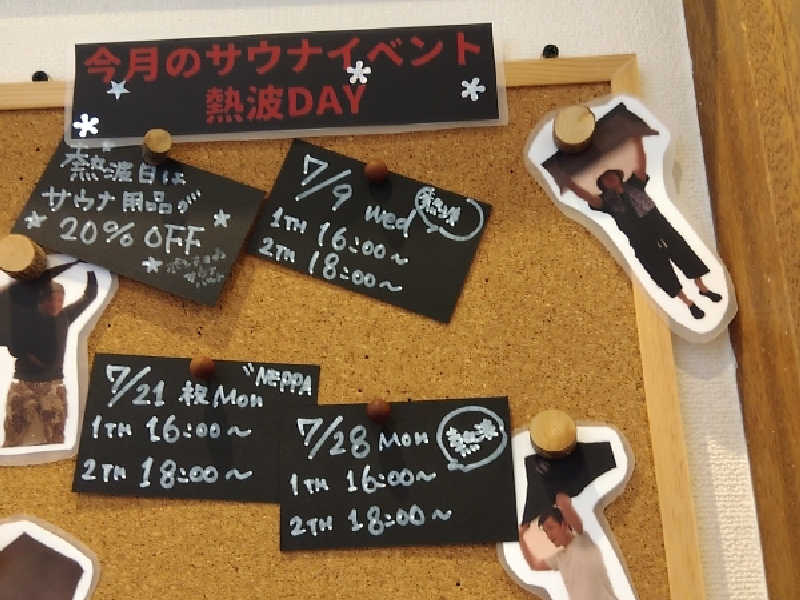 今月のサウナイベント
熱波DAY
熱波日は
サウナ用品が
20% OFF
7/9 Wed 熱波
1TH 16:00~
2TH 18:00~
7/21 祝 Mon "NEPPA
1TH 16:00~
2TH 18:00~
7/28 Mon 熱波
1TH 16:00~
2TH 18:00~